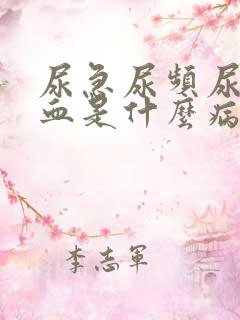 尿急尿頻尿
血是什麼病
李志軍